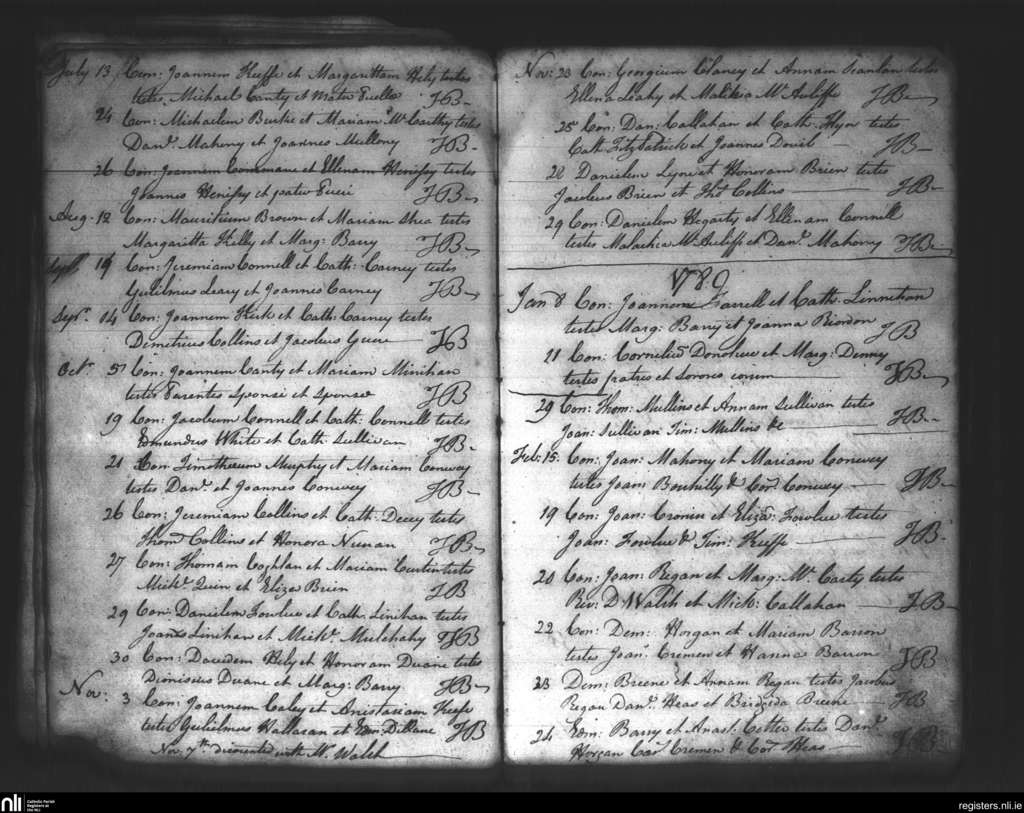 July 13 Con: Joannem Keeffe et Margarittam Hely testes
testes, Michael Canty et Mater Puellae JB
24 Con: Michaelem Burke et Mariam Mc Carthy testes
Danl Mahony et Joannes Mullony JB
26 Con: Joannem Commane et Ellenam Henessy testes
Joannes Henessy et pater JB
Aug. 12 Con: Mauritium Brown et Mariam Shea testes
Margaritta Kelly et Marg: Barry JB
19 Con: Jeremiam Connell et Cath: Carney testes
Gulielmus Leary et Joannes Carney JB
Sepr. 14 Con: Joannem Kirk et Cath: Carney testes
Demetrius Collins et Jacobus JB
Octr. 5 Con: Joannem Canty et Mariam Minihan
testes Parentes Sponsi et Sponsae JB
19 Con: Jacobum Connell et Cath: Connell testes
Edmundus White et Cath: Sullivan JB
21 Con Timotheum Murphy et Mariam Conway
testes Danl. et Joannes Conway JB
26 Con: Jeremiam Collins et Cath: Decey testes
Thoms Collins et Honora Nunan JB
27 Con: Thomam Coghlan et Mariam Curtin testes
Michl. Quin et Eliza Brien JB
29 Con: Danielem Fowlue et Cath: Linihan testes
Joans Linihan et Michl. Mulchahy JB
30 Con: Davidem Hely et Honoram Duane testes
Dionisius Duane et Marg: Barry JB
Nov: 3 Con: Joannem Caley et Anistasiam Keefe
testes Gulielmus Hallasan et Edm: Dillane JB
Nov. 7th with Mr. Walsh
Nov: 23 Con: Georgium Clancy et Annam Scanlan testes
Ellena Leahy et Malikia Mc Auliffe JB
25 Con: Dan: Callahan et Cath: testes
Cath FitzPatrick et Joannes JB
28 Danielem Lyne et Honoram Brien testes
Jacobus Brien et Collins JB
29 Con: Danielem Hegarty et Ellenam Connell
testes Malachia Mc Auliffe et Danl. Mahony JB
1789
Jan 8 Con: Joannem Farrell et Cath: Linnehan
testes Marg: Barry et Joanna Riordon JB
11 Con: Cornelius Donohue et Marg: Denny
testes fratres et Sorores eorum JB
29 Con: Thom: Mullins et Annam Sullivan testes
Joan: Sullivan Tim: Mullins &c JB
Feb: 15. Con: Joan: Mahony et Mariam Conwey
testes Joan: Bouhilly & Cors Conwey JB
19 Con: Joan: Cronin et Eliza: Fowlue testes
Joan: Fowlue & Tim: Keeffe JB
20 Con: Joan: Regan et Marg: Mc. Carty testes
Rev: D Walsh et Mich: Callahan JB
22 Con: Dem: Horgan et Mariam Barron
testes Joan: Cremen et Hanna Barron JB
23 Dem: Breene et Annam Regan testes Jacobus
Regan Danl. Heas et Bridgida Breene JB
24 Edm: Barry et Anast: Cotter testes Danl.
Horgan Cors Cremen & Cors Heas JB
nli Catholic Parish
Registers at
the NLI
registers.nli.ie